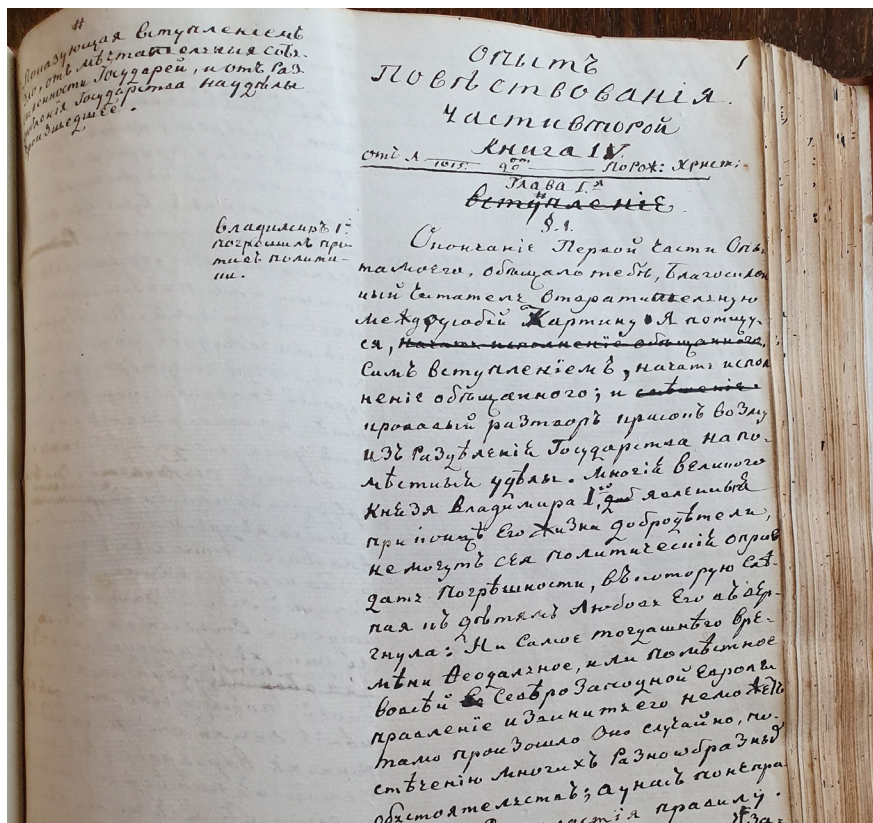 #
Показующая вступленіемъ
отъ мѣстъ
Государей, и отъ раз
Государства на удѣлы
произшедшее.
1
Опытъ
Повѣствованія.
Части второй
Книга IV.
отъ л 1015. до от. Порож: Христ:
Глава I.я
вступленіе
§.1.
Владимиръ I.й
погрешилъ про
тивъ полити-
ки.
Окончаніе Первой Части Опы-
та моего, обѣщало тебѣ, Благосклон
ный Читатель отвратительную
Междуусобій Картину. Я потщу-
ся, начать исполненіе обѣщаннаго.
Симъ вступленіемъ, начать испол
неніе обѣщаннаго; и
кровавый разтворъ красокъ возму
изъ Раздѣленій Государства на по-
мѣстный удѣлы. Многій Великого
Князя Владимира I.го явленный
при концѣ Его Жизни добродѣтели,
не могутъ сея политическій оправ
дать Погрѣшности, въ которую Слѣ-
пая къ дѣтямъ Любовь Его ввер-
гнула: Ни Самое тогдашнѣго вре-
мѣни Ѳеодальное, или помѣстное
во всѣй Сѣверо Западной Европы
правленіе извинить его неможетъ
тамо произошло Оно случайно, по-
стѣченію многихъ Разнообразный
обстоятельствъ; а у насъ
правилу.